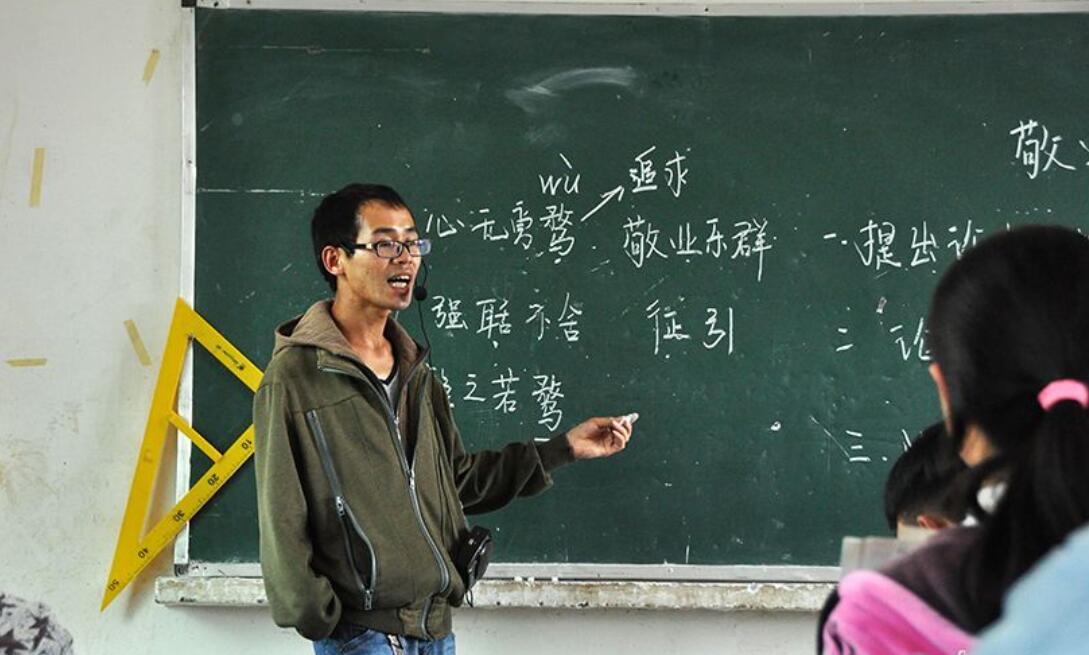 敬
wù 追求
心无旁骛 敬业乐群 一.提出
强聒不舍 征引 二 论
之若骛 三.
10
20
30
40
50